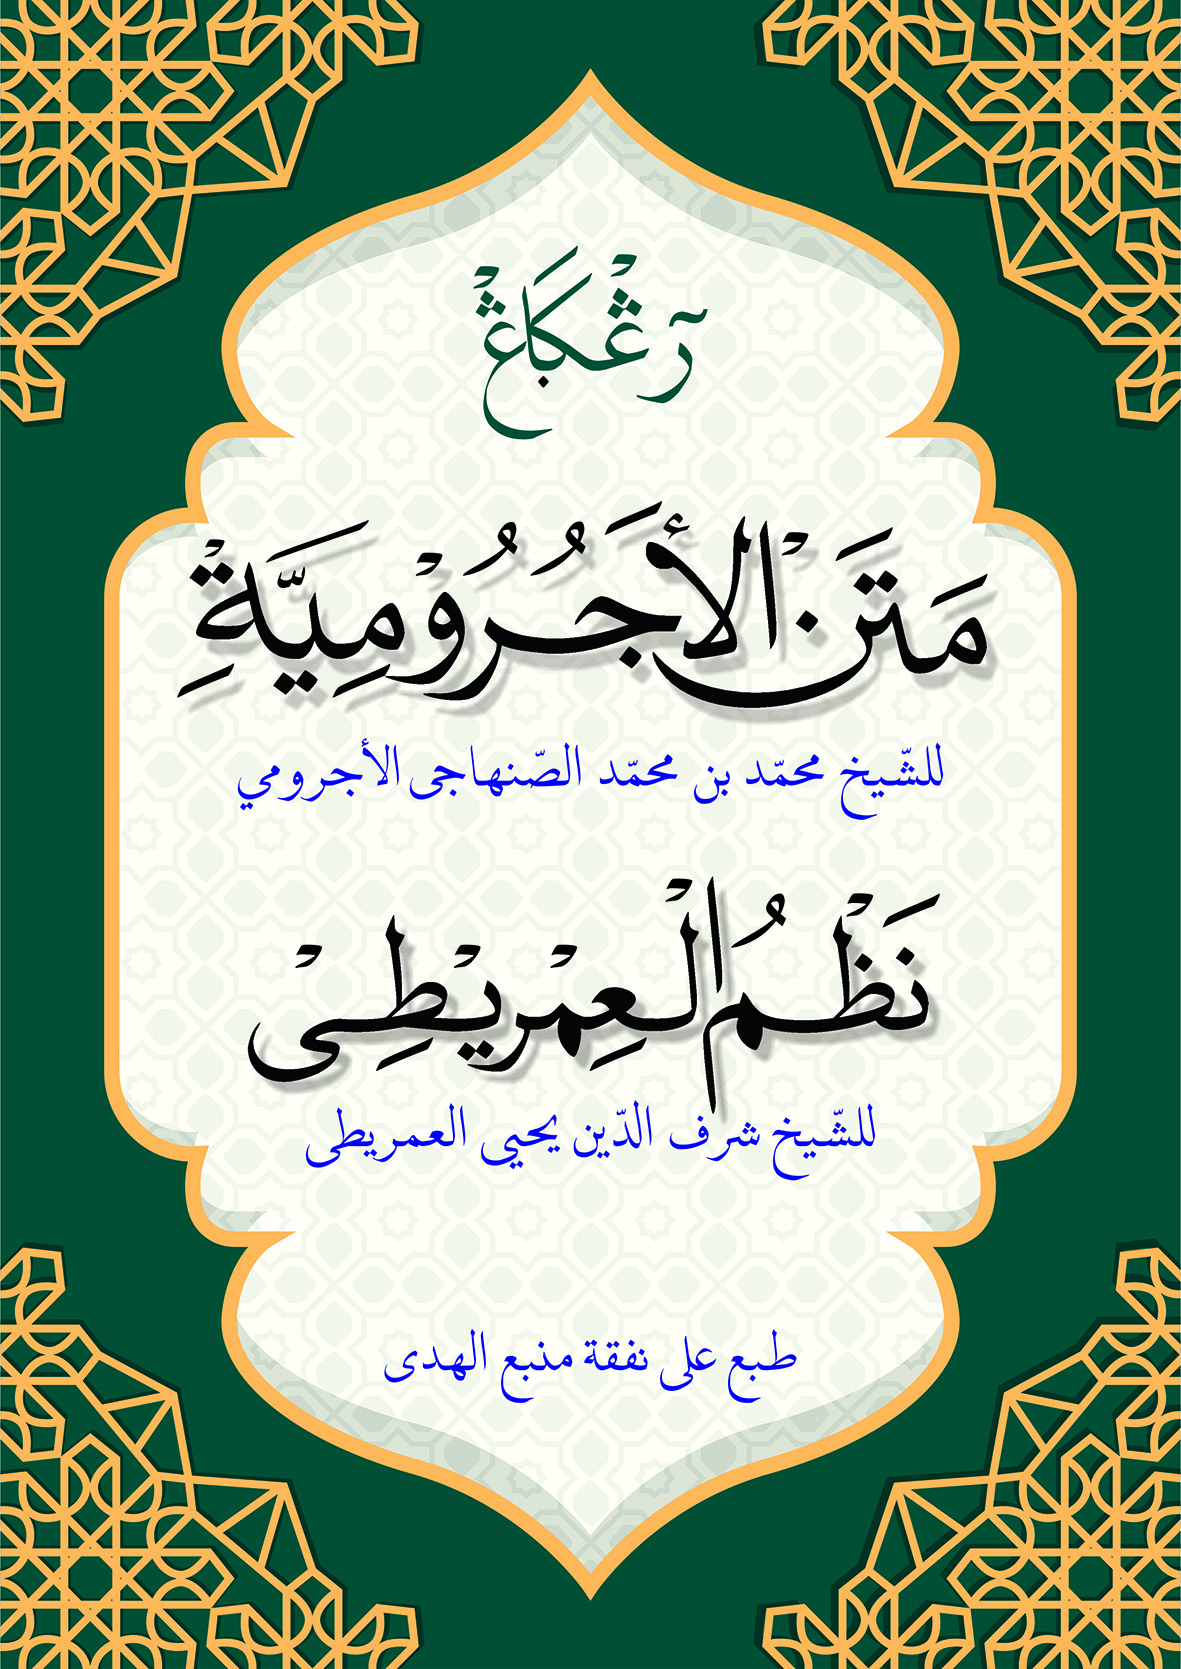 رَ~ڠْكَاڠْ
مَتَنْ الْأَجَرُرُوْمِيَّةِ
للشّيخ محمّد بن محمّد الصّنهاجى الأجرومي
نَظْمُ الْعِمْرِيْطِىْ
للشّيخ شرف الدّين يحيى العمريطى
طبع على نفقة منبع الهدى